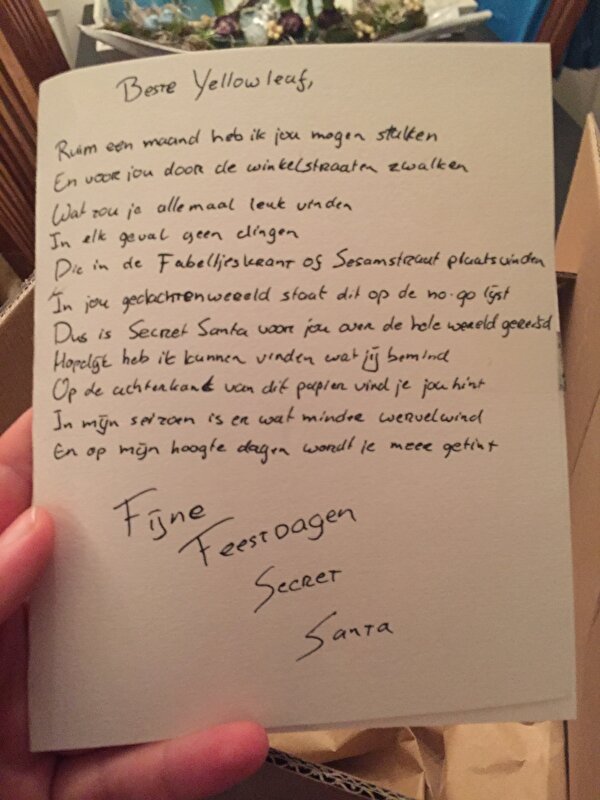 Beste Yellowleaf,
Ruim een maand heb ik jou mogen stalken
En voor jou door de winkelstraaten zwalken
Wat zou je allemaal leuk vinden
In elk geval geen dingen
Die in de Fabeltjeskrant of Sesamstraat plaatsvinden
In jou gedachtenwereld staat dit op de no-go lijst
Dus is Secret Santa voor jou over de hele wereld gereisd
Hopelijk heb ik kunnen vinden wat jij bemind
Op de achterkant van dit papier vind je jou hint
In mijn seizoen is er wat minder wervelwind
En op mijn hoogte dagen wordt je meer getint
Fijne
Feestdagen
Secret
Santa